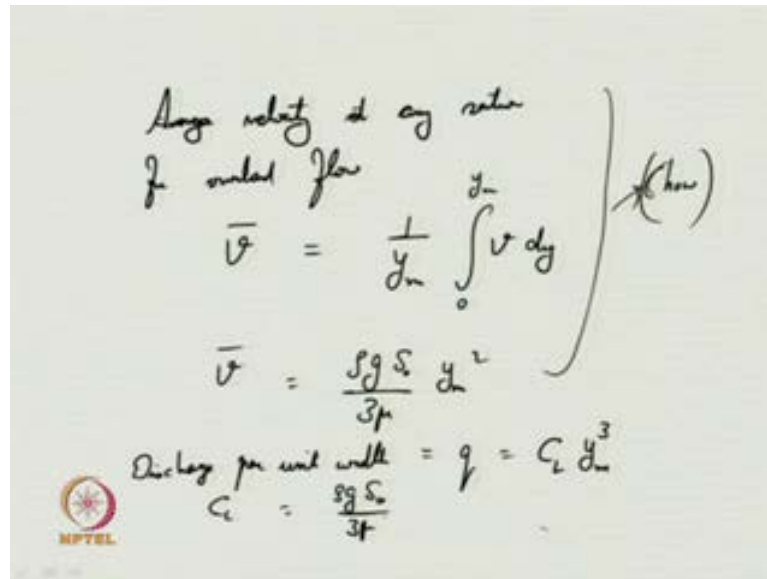 Average velocity at any section (how)
for overland flow
v̄ = 1/yₘ ∫₀^yₘ v dy
v̄ = ρg S₀/3μ yₘ²
Discharge per unit width = q = C_L yₘ³
C_L = ρg S₀/3μ
NPTEL